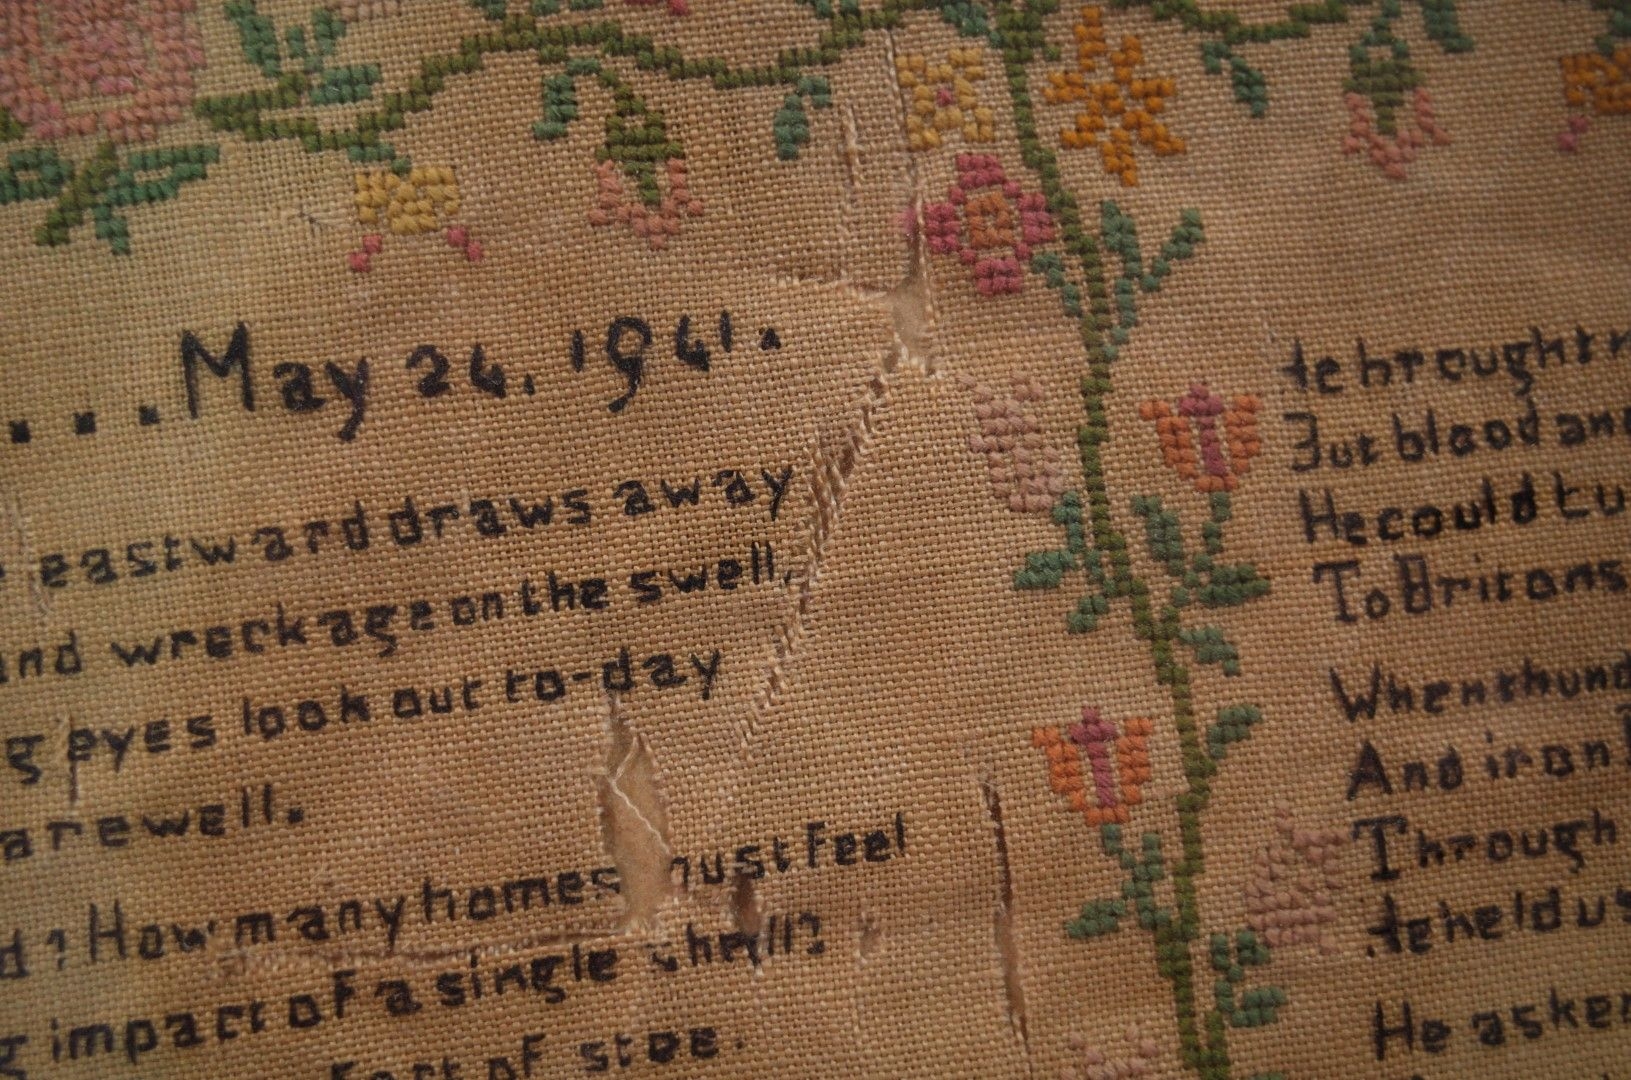 ...May 24, 1941.
eastward draws away
and wreckage on the swell,
g eyes look out to-day
arewell.
d? How many homes must feel
g impact of a single shell?
Fort of stoe.
He brought
But blood and
He could tu
To Britons
When thund
And iron
Through
He held us
He asked